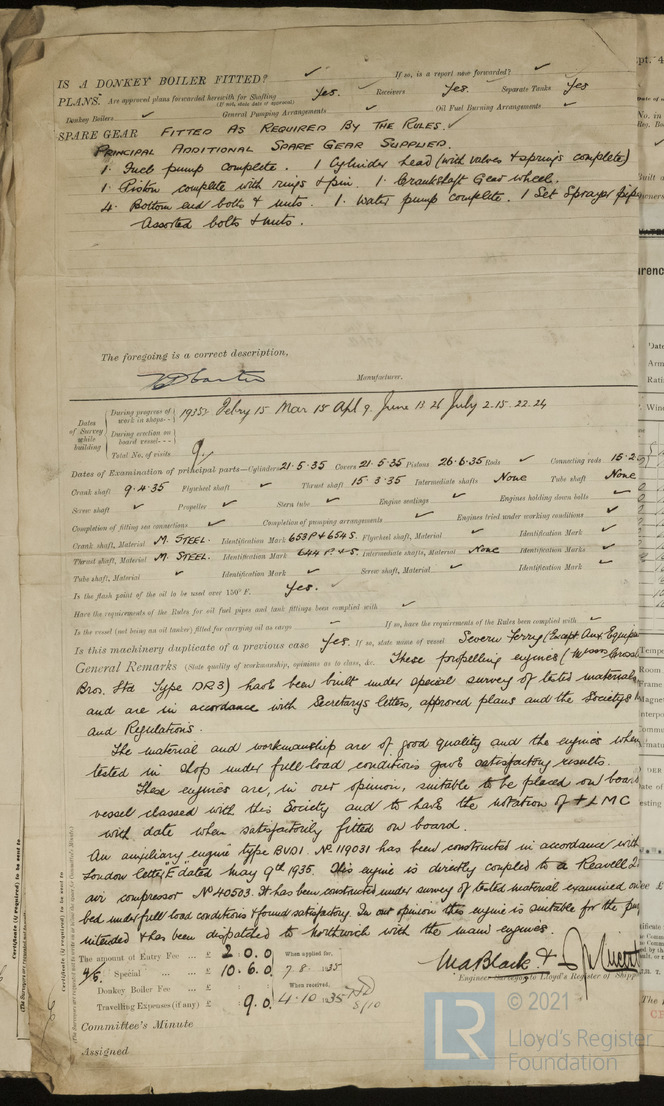 IS A DONKEY BOILER FITTED? ✓ If so, is a report now forwarded? ✓
PLANS. Are approved plans forwarded herewith for Shafting Yes. Receivers Yes. Separate Tanks Yes
(If not, state date of approval)
Donkey Boilers ✓ General Pumping Arrangements ✓ Oil Fuel Burning Arrangements ✓
SPARE GEAR FITTED AS REQUIRED BY THE RULES. ✓
PRINCIPAL ADDITIONAL SPARE GEAR SUPPLIED.
1. Fuel pump complete. 1 Cylinder head (with valves & springs complete)
1. Piston complete with rings & pin. 1. Crankshaft Gear wheel.
4. Bottom end bolts & nuts. 1. Water pump complete. 1 Set Sprayer pipes
Assorted bolts & nuts.
The foregoing is a correct description,
Manufacturer.
Dates of Survey while building
During progress of work in shops - - 1935 Febry 15 Mar 15 Apl 9. June 13 26 July 2. 15. 22. 24
During erection on board vessel - - -
Total No. of visits 9.
Dates of Examination of principal parts—Cylinders 21.5.35 Covers 21.5.35 Pistons 26.6.35 Rods ✓ Connecting rods 15.2
Crank shaft 9.4.35 Flywheel shaft ✓ Thrust shaft 15.3.35 Intermediate shafts None Tube shaft None
Screw shaft ✓ Propeller ✓ Stern tube ✓ Engine seatings ✓ Engines holding down bolts ✓
Completion of fitting sea connections ✓ Completion of pumping arrangements ✓ Engines tried under working conditions ✓
Crank shaft, Material M. STEEL. Identification Mark 653P & 654S. Flywheel shaft, Material ✓ Identification Mark ✓
Thrust shaft, Material M. STEEL. Identification Mark 644 P. & S. Intermediate shafts, Material None Identification Marks ✓
Tube shaft, Material ✓ Identification Mark ✓ Screw shaft, Material ✓ Identification Mark ✓
Is the flash point of the oil to be used over 150° F. Yes. ✓
Have the requirements of the Rules for oil fuel pipes and tank fittings been complied with ✓
Is the vessel (not being an oil tanker) fitted for carrying oil as cargo – If so, have the requirements of the Rules been complied with ✓
Is this machinery duplicate of a previous case Yes. If so, state name of vessel Severn Ferry (Except Aux Equip
General Remarks (State quality of workmanship, opinions as to class, &c. These propelling engines (Messrs Cross
Bros. Ltd Type DR3) have been built under special survey of tested materials
and are in accordance with Secretarys letters, approved plans and the Societys
and Regulations.
The material and workmanship are of good quality and the engines when
tested in shop under full load conditions gave satisfactory results.
These engines are, in our opinion, suitable to be placed on board
vessel classed with this Society and to have the notation of + LMC
with date when satisfactorily fitted on board.
An auxiliary engine type BVD1. No 119031 has been constructed in accordance with
London letter "E" dated May 9th 1935. This engine is directly coupled to a Reavell
air compressor No 40503. It has been constructed under survey of tested material examined on
bed under full load conditions & found satisfactory. In our opinion this engine is suitable for the
intended & has been dispatched to Northwich with the main engines.
The amount of Entry Fee ... £ 2.0.0 When applied for,
4/5. Special ... ... £ 10.6.0 7.8.1935
Donkey Boiler Fee ... £ When received,
Travelling Expenses (if any) £ 9.0 4.10.1935
Engineer Surveyor to Lloyd's Register of Shipp
Committee's Minute
Assigned
Certificate (if required) to be sent to
© 2021
LR
Lloyd's Register
Foundation